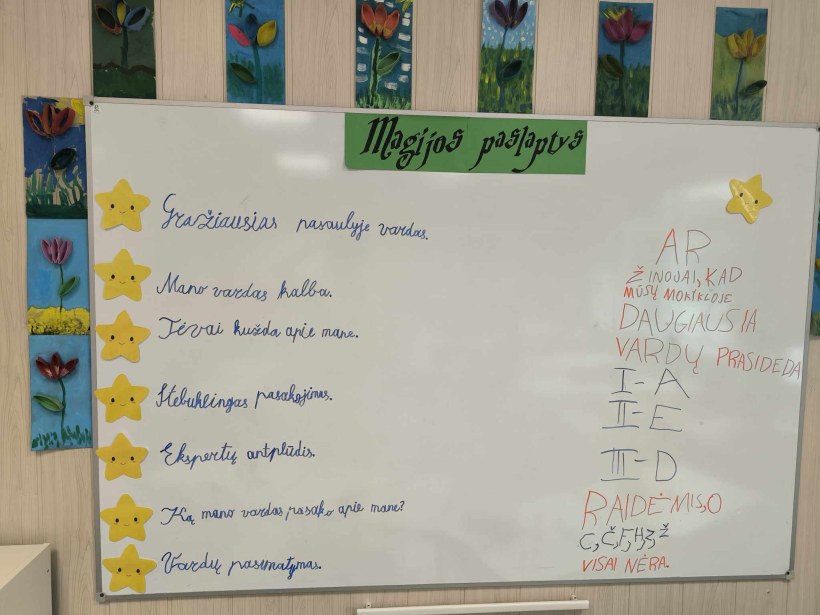 Magijos paslaptys
Gražiausias pasaulyje vardas.
Mano vardas kalba.
Tėvai kužda apie mane.
Stebuklingas pasakojimas.
Ekspertų antplūdis.
Ką mano vardas pasako apie mane?
Vardų pasimatymas.
AR
ŽINOJAI, KAD
MŪSŲ MOKYKLOJE
DAUGIAUSIA
VARDŲ PRASIDEDA
I-A
II-E
III-D
RAIDĖMIS, O
C, Č, F, H, Z, Ž
VISAI NĖRA.